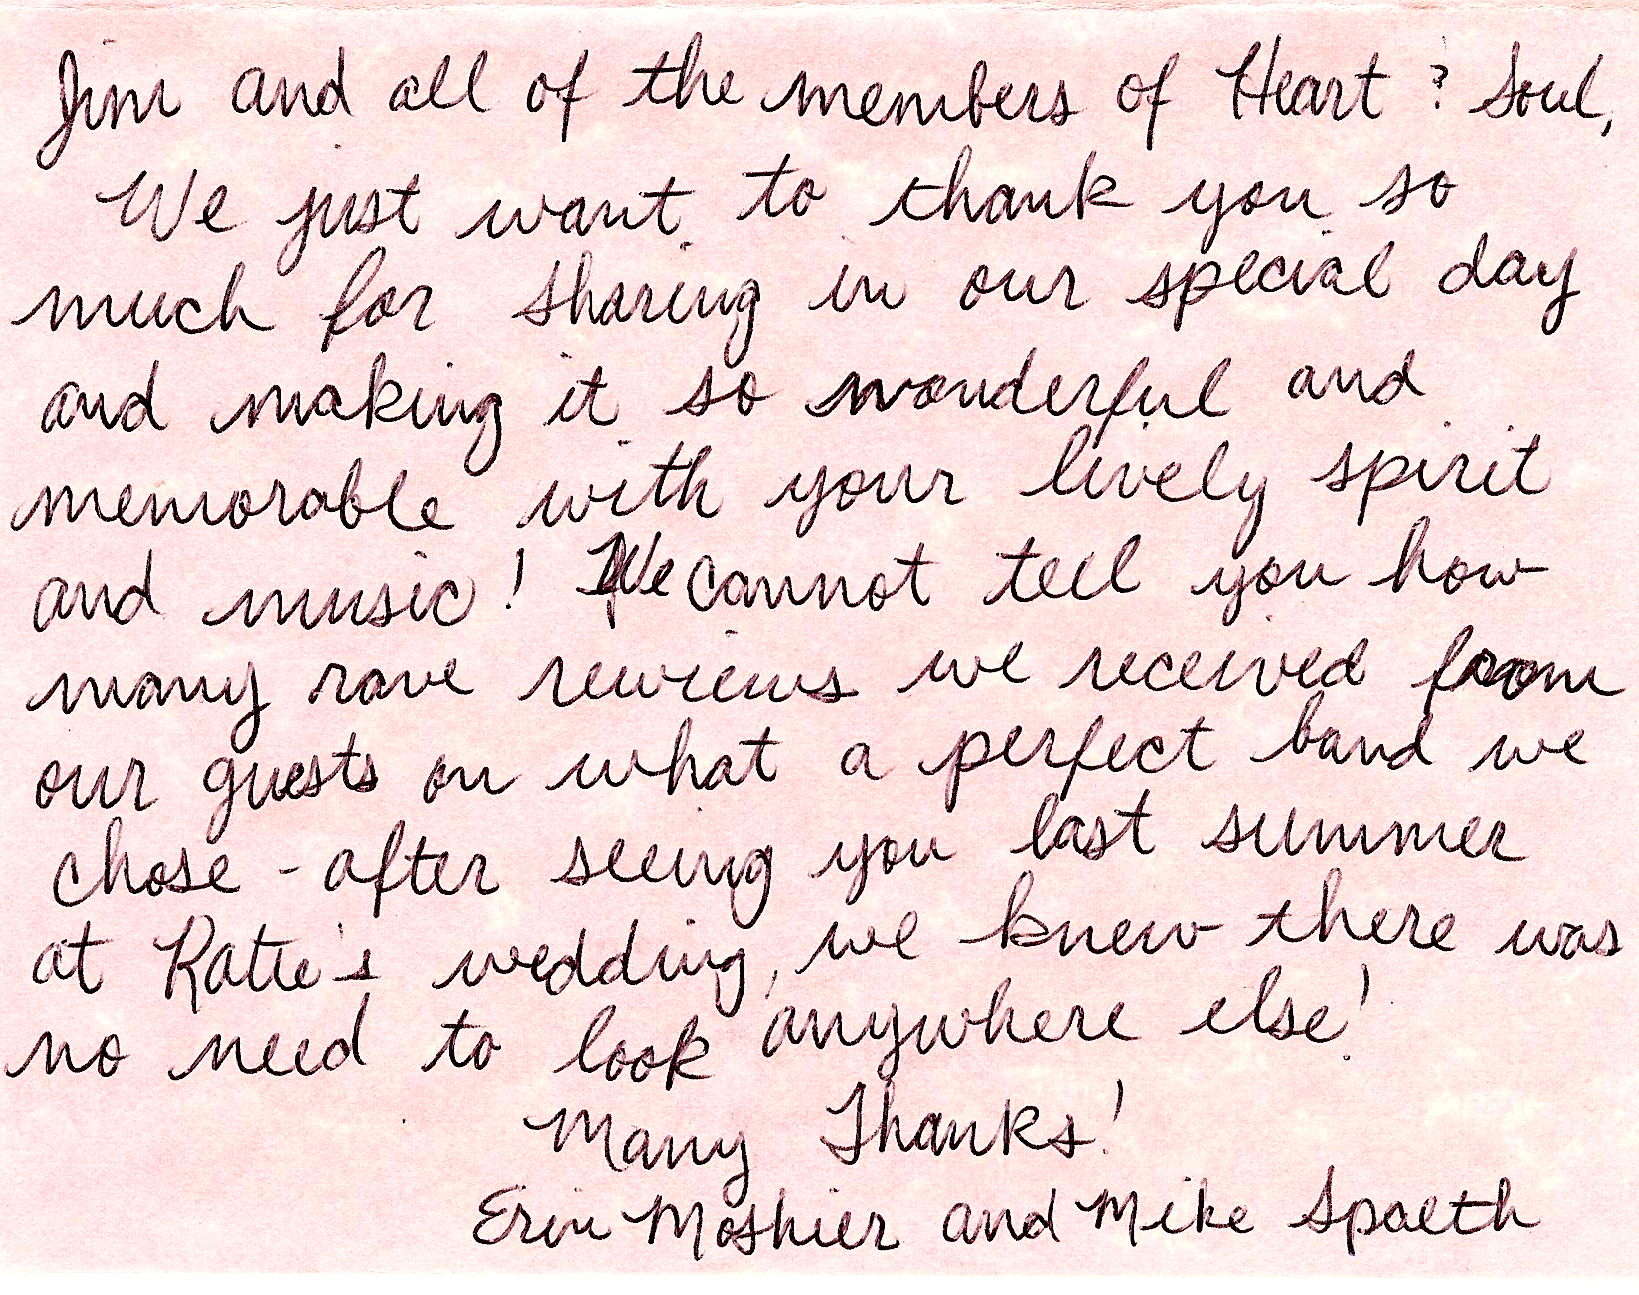 Jim and all of the members of Heart & Soul,
We just want to thank you so
much for sharing in our special day
and making it so wonderful and
memorable with your lively spirit
and music! We cannot tell you how
many rave reviews we received from
our guests on what a perfect band we
chose - after seeing you last summer
at Katie's wedding, we knew there was
no need to look anywhere else!
Many Thanks!
Erin Moshier and Mike Spaeth